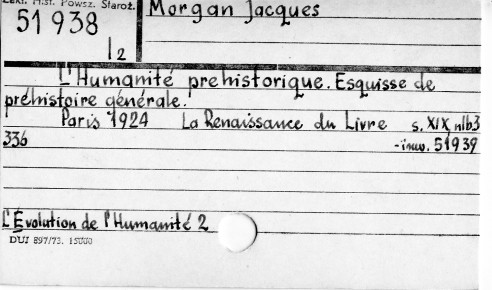 Zakł. Hist. Powsz. Staroż.
Morgan Jacques
51 938
12
L'Humanité prehistorique. Esquisse de
préhistoire générale.
Paris 1924 La Renaissance du Livre s. XIX nlb 3
336 - inw. 51939
L'Évolution de l'Humanité 2
DUJ 897/73. 15000